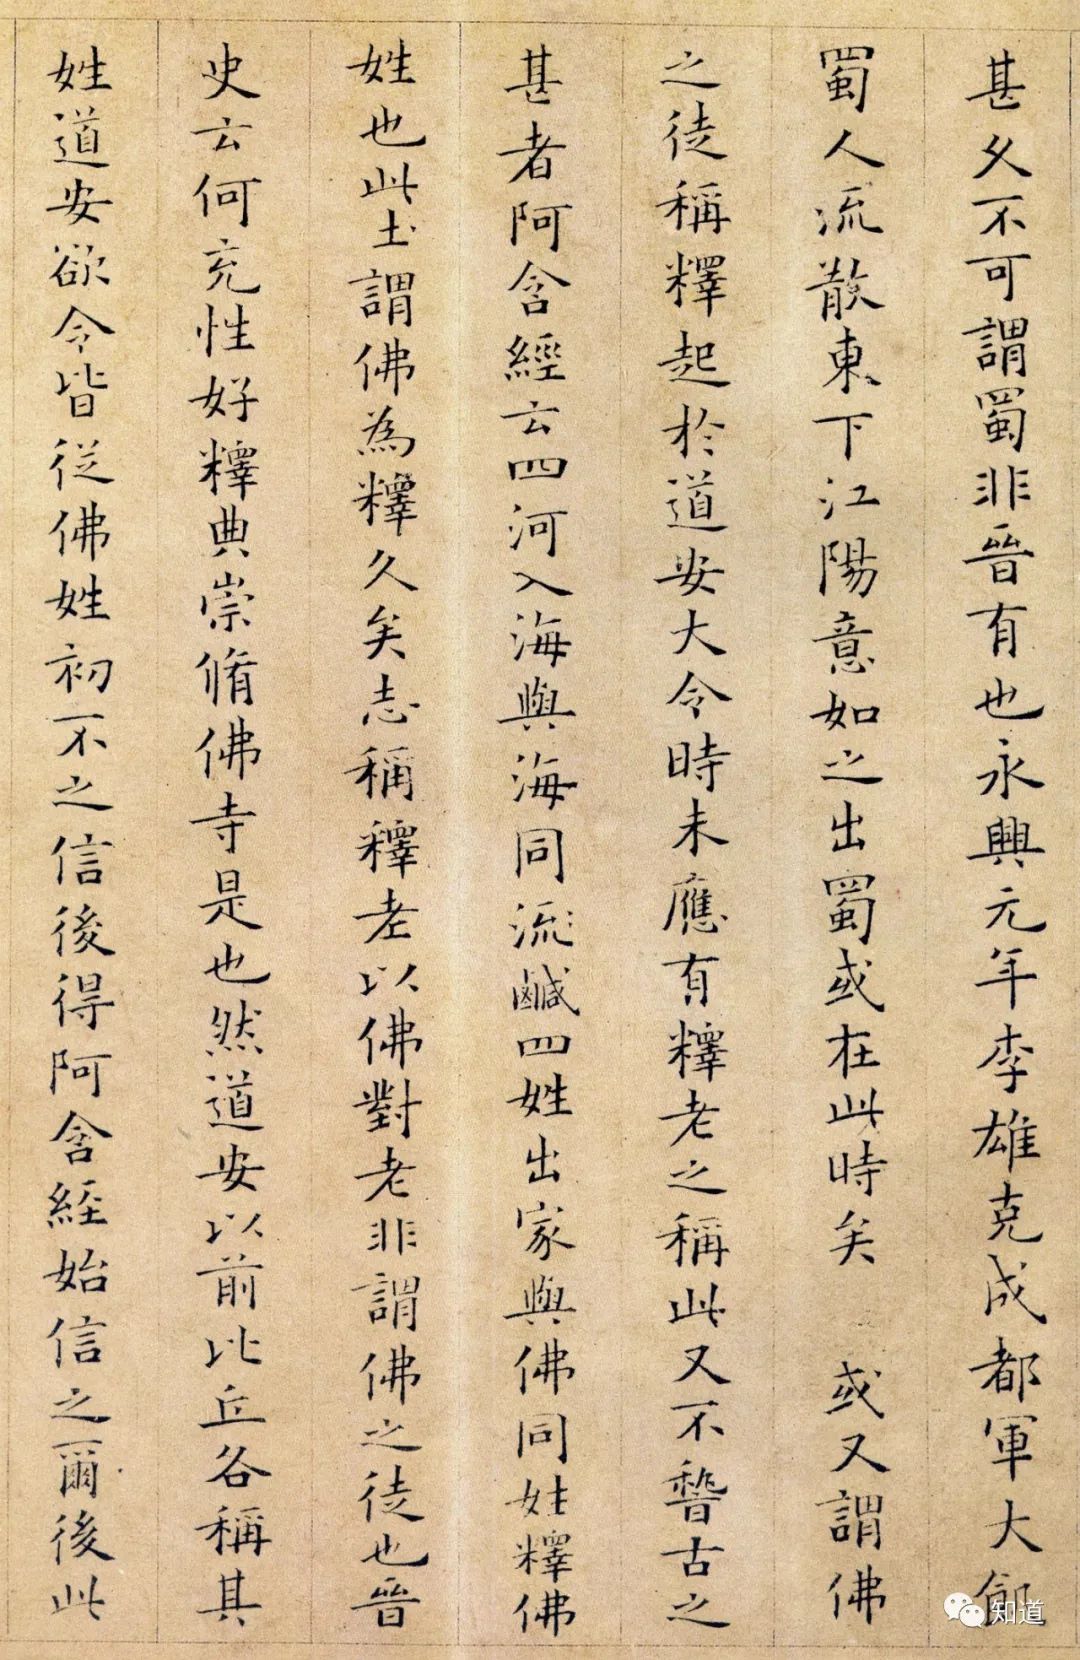 甚久不可謂蜀非晉有也永興元年李雄克成都軍大
蜀人流散東下江陽意如之出蜀或在此時矣　或又謂佛
之徒稱釋起於道安大令時未應有釋老之稱此又不稽古之
甚者阿含經云四河入海與海同流鹹四姓出家與佛同姓釋佛
姓也此土謂佛為釋久矣志稱釋老以佛對老非謂佛之徒也晉
史云何充性好釋典崇脩佛寺是也然道安以前比丘各稱其
姓道安欲令皆從佛姓初不之信後得阿含經始信之爾後此
知道